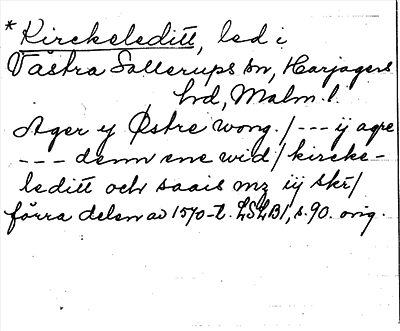 *Kirckeleditt, led i
Västra Sallerups sn, Harjagers
hd, Malm. l.
Ager y Østre wong. / --- ij agre
--- denn ene wid / kircke-
leditt och saais mz iij skr /
förra delen av 1570-t. LSLB1, s. 90. orig.